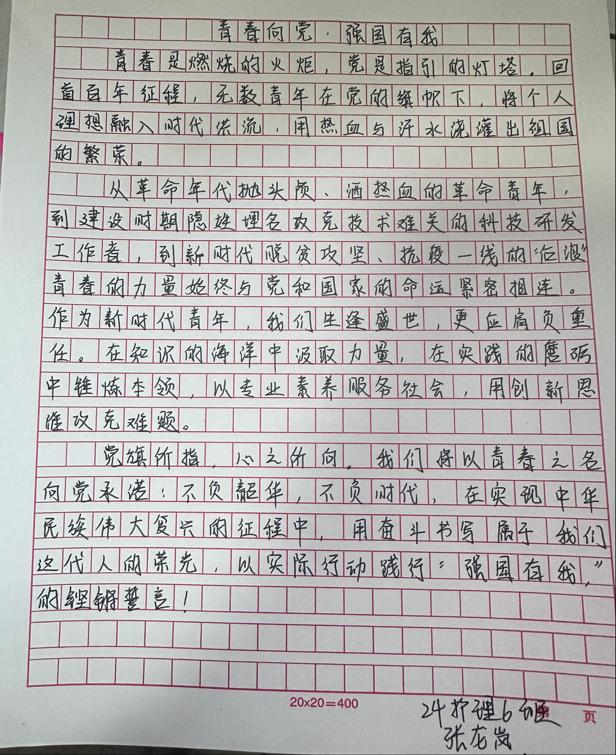 青春向党·强国有我
青春是燃烧的火炬，党是指引的灯塔。回
首百年征程，无数青年在党的旗帜下，将个人
理想融入时代洪流，用热血与汗水浇灌出祖国
的繁荣。
从革命年代抛头颅、洒热血的革命青年，
到建设时期隐姓埋名攻克技术难关的科技研发
工作者，到新时代脱贫攻坚、抗疫一线的“后浪”
青春的力量始终与党和国家的命运紧密相连。
作为新时代青年，我们生逢盛世，更应肩负重
任。在知识的海洋中汲取力量，在实践的磨砺
中锤炼本领，以专业素养服务社会，用创新思
维攻克难题。
党旗所指，心之所向。我们将以青春之名
向党承诺：不负韶华，不负时代，在实现中华
民族伟大复兴的征程中，用奋斗书写属于我们
这代人的荣光，以实际行动践行“强国有我，”
的铿锵誓言！
20×20=400
页
24护理6班
张龙岗